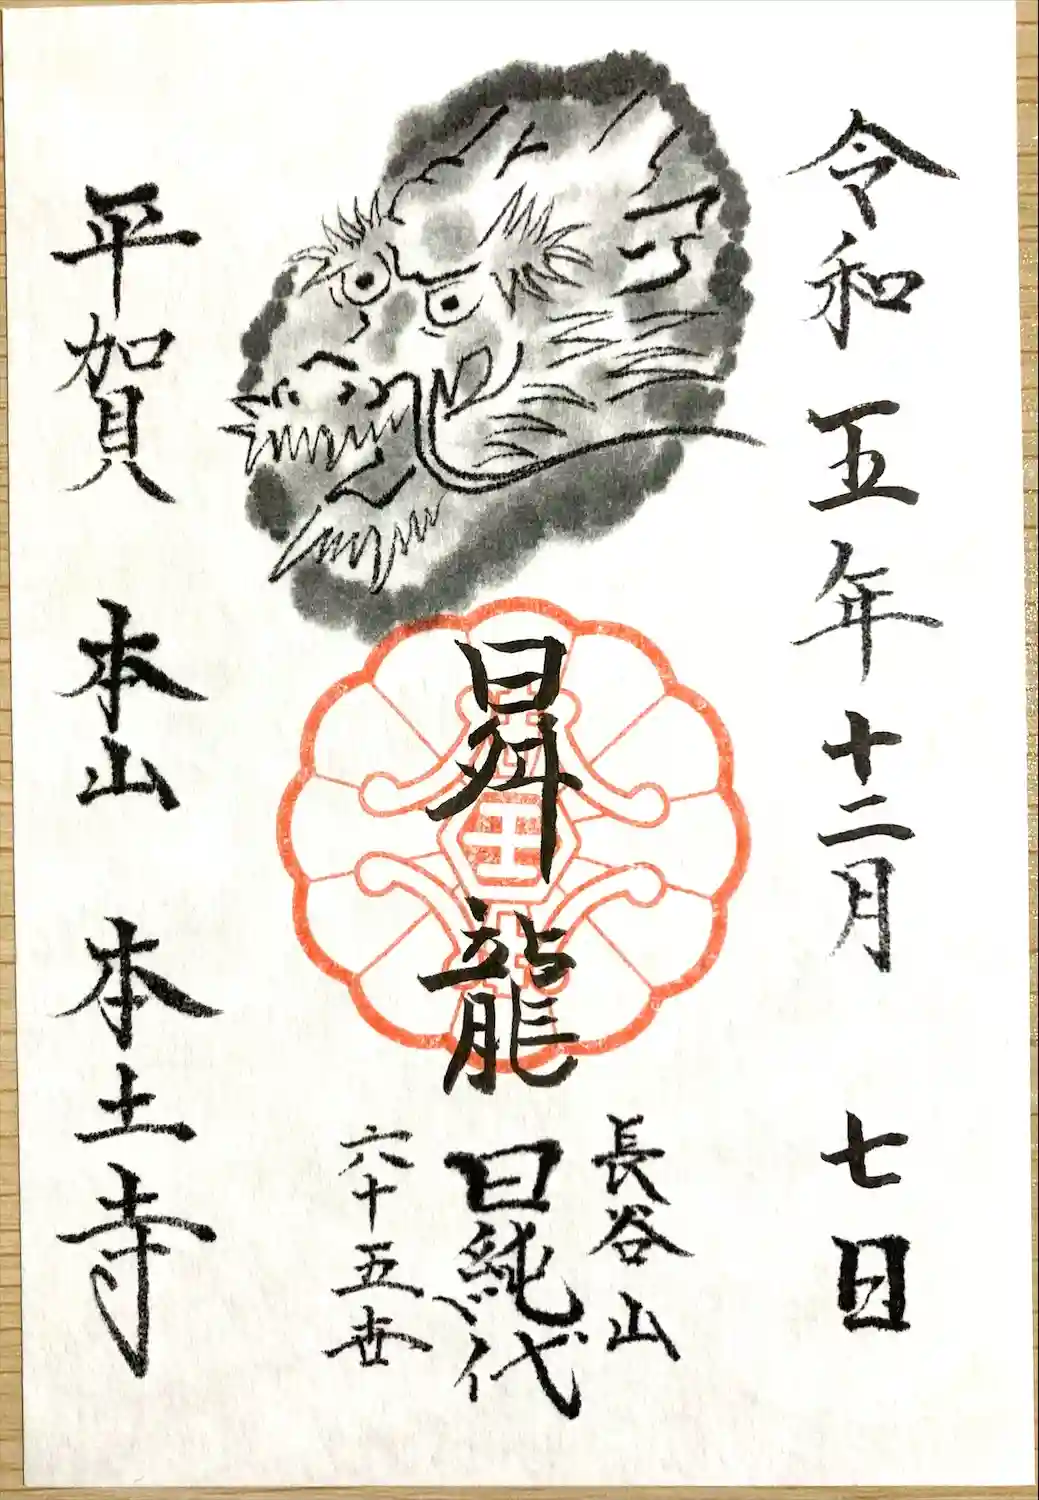 令和五年十二月 七日
昇龍
長谷山
日純代
六十五世
平賀 本山 本土寺